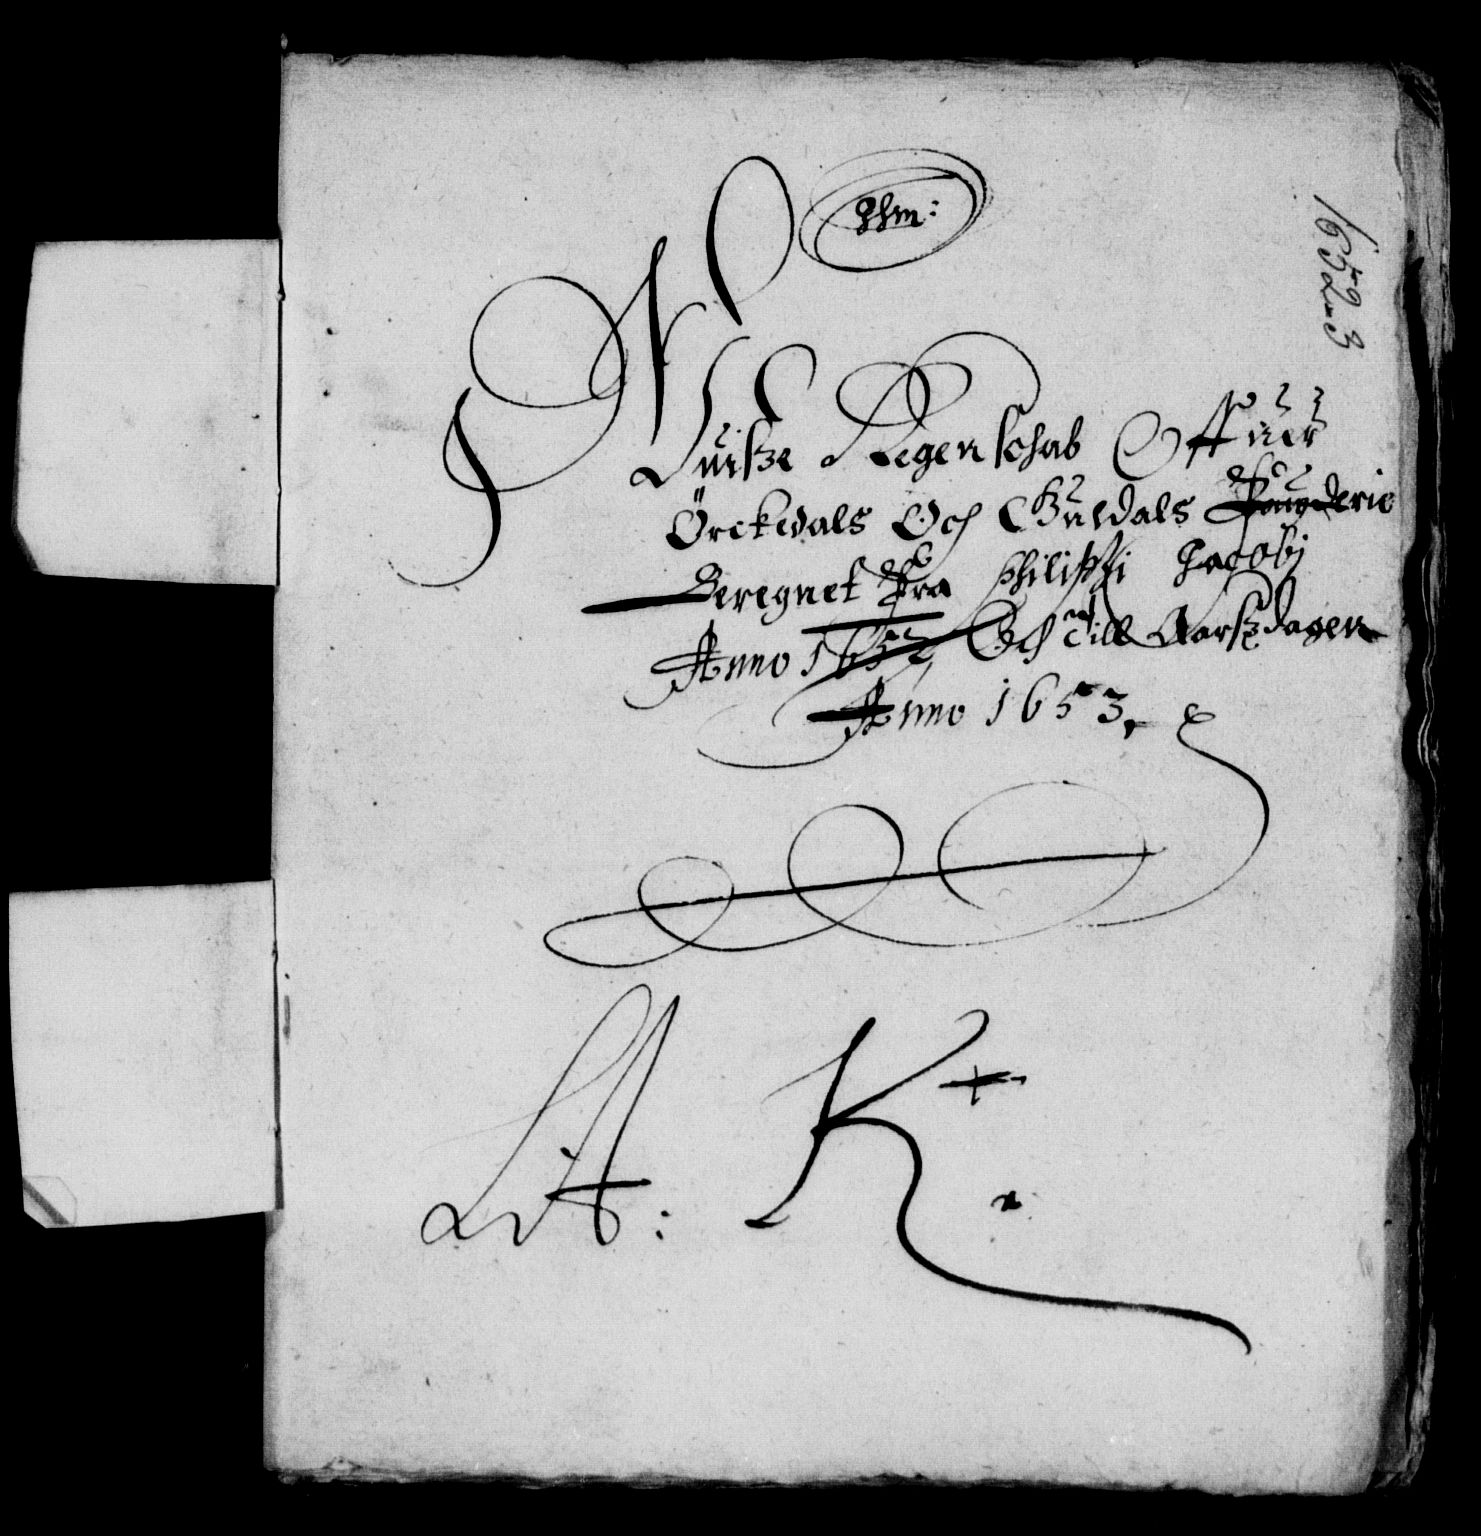 1652-3
Wisze Regenschab Offuer
Örckedals Och Guldals Fougderie
Beregnet Fra Philippi Jacobj
Anno 1652, Och Till Aarszdagen
Anno 1653,
Lit: K.